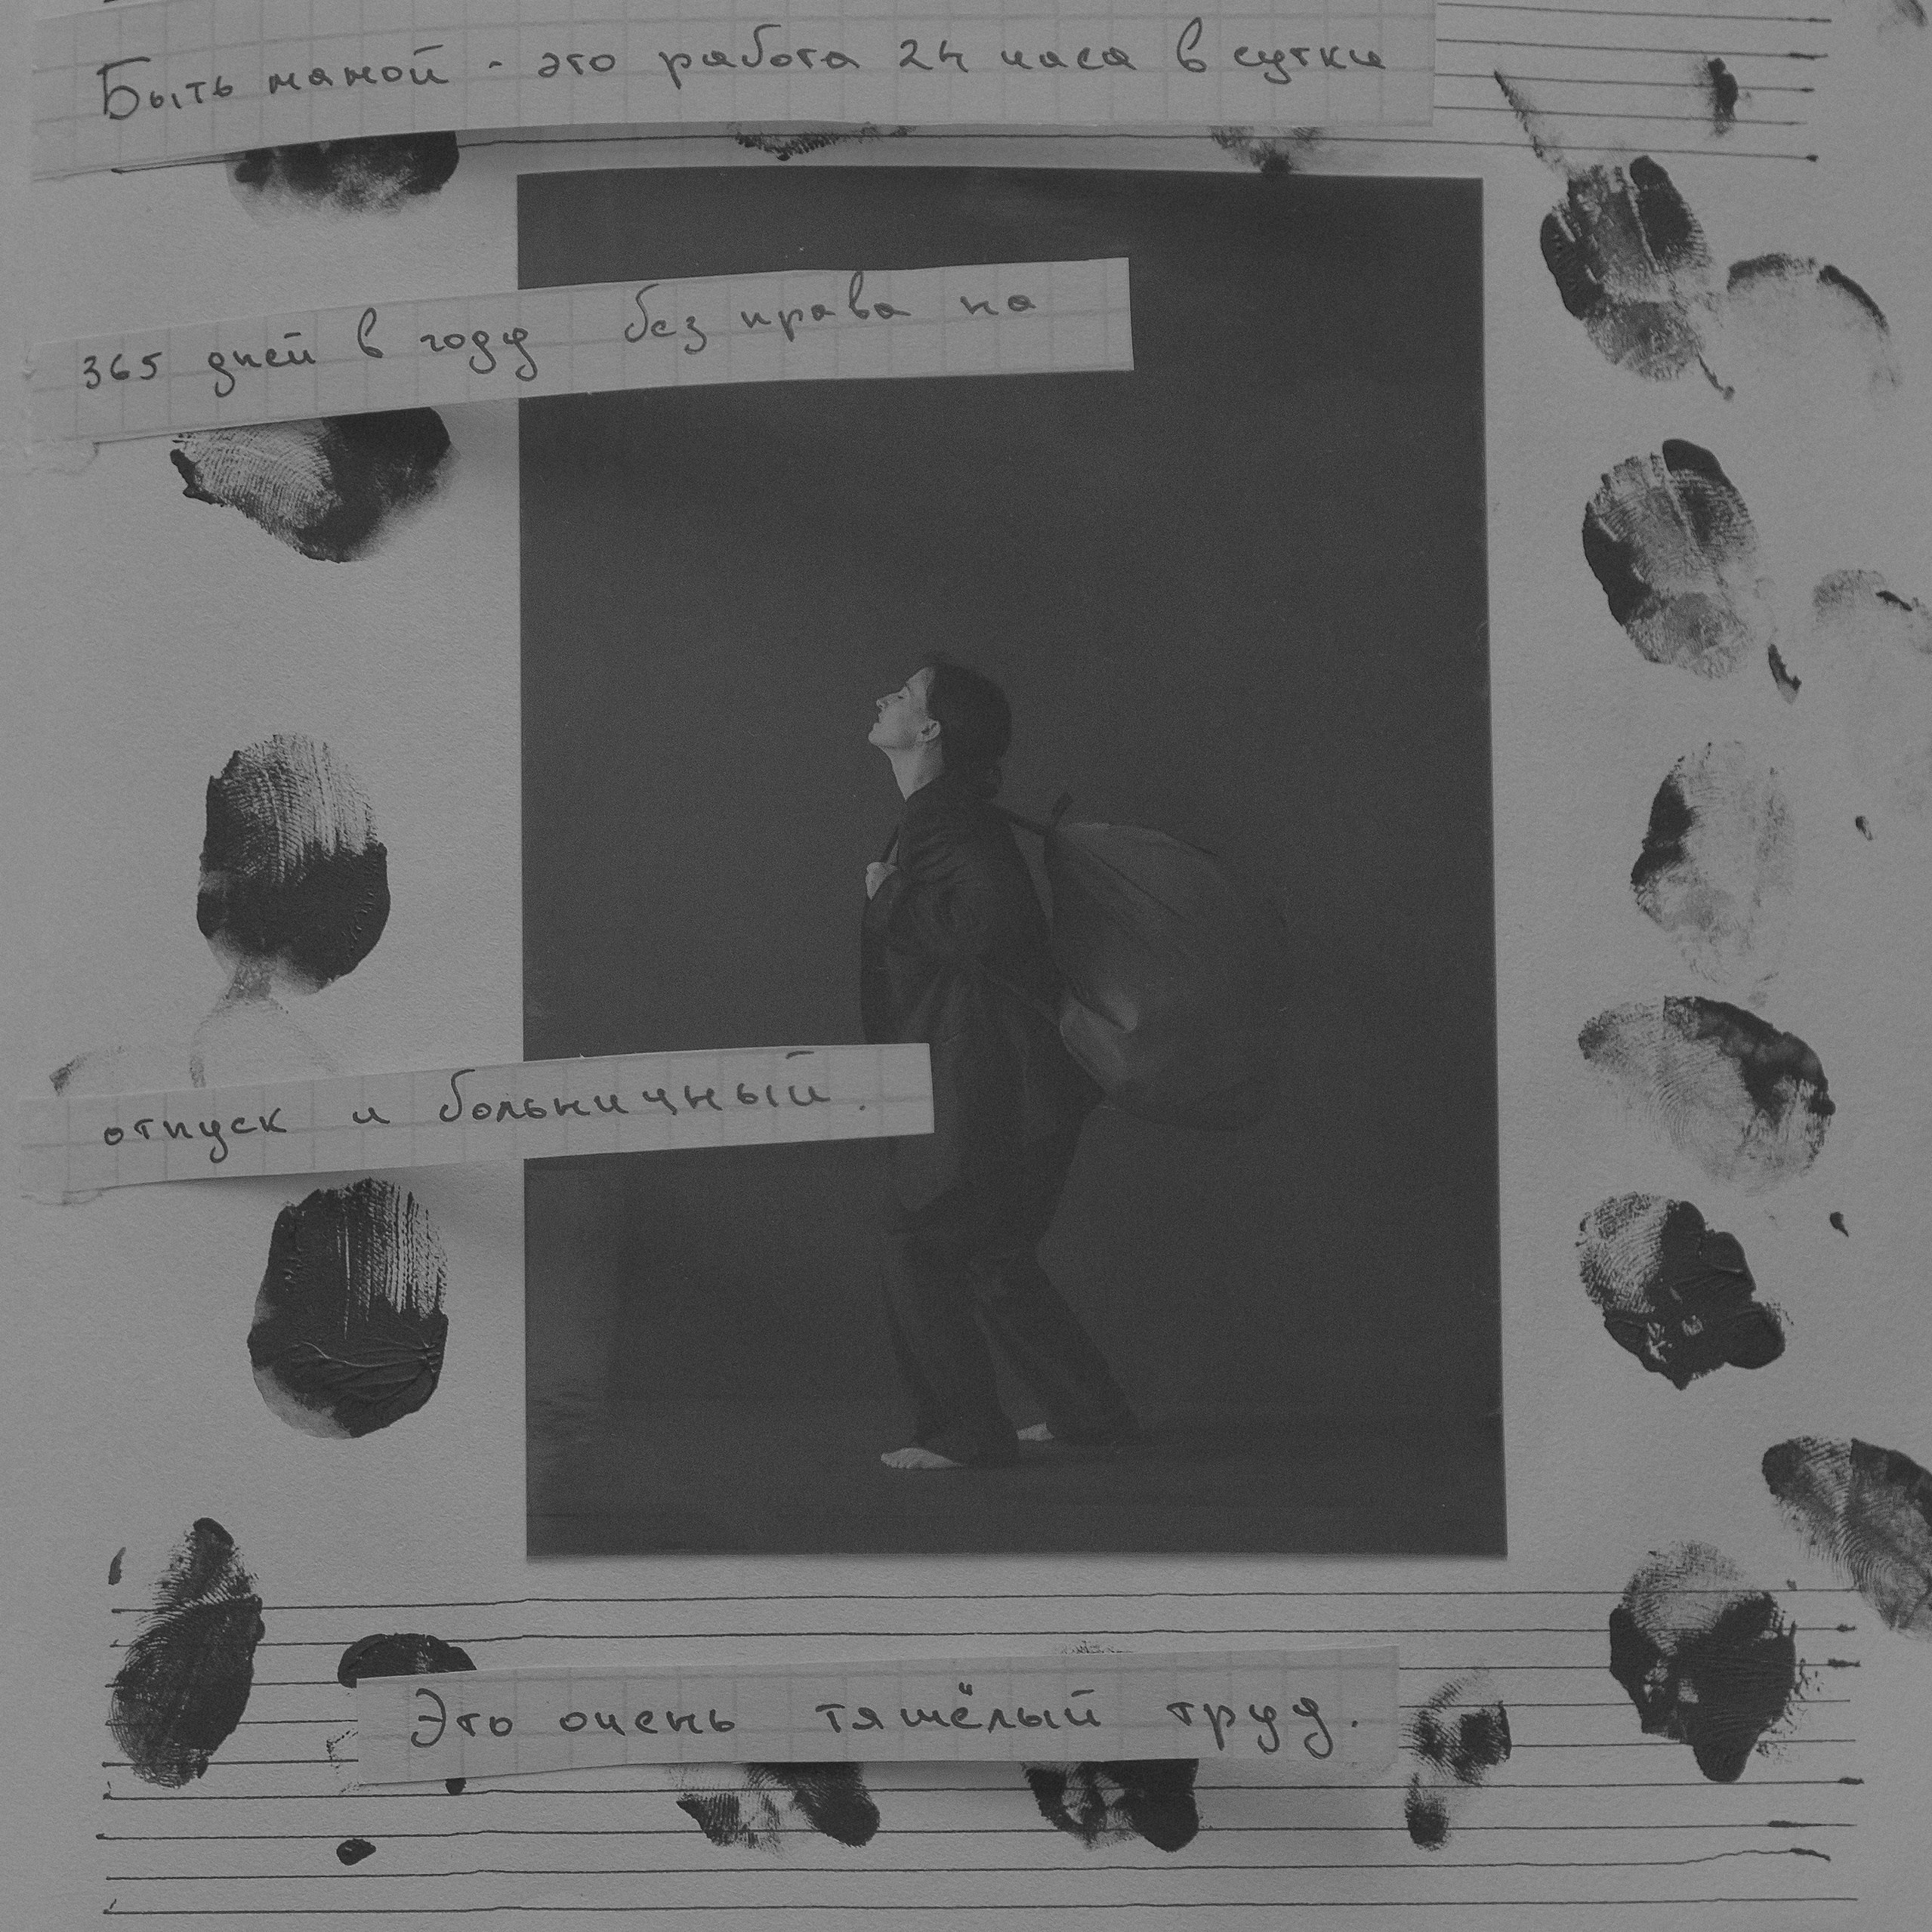 Быть мамой - это работа 24 часа в сутки
365 дней в году без права на
отпуск и больничный.
Это очень тяжёлый труд.